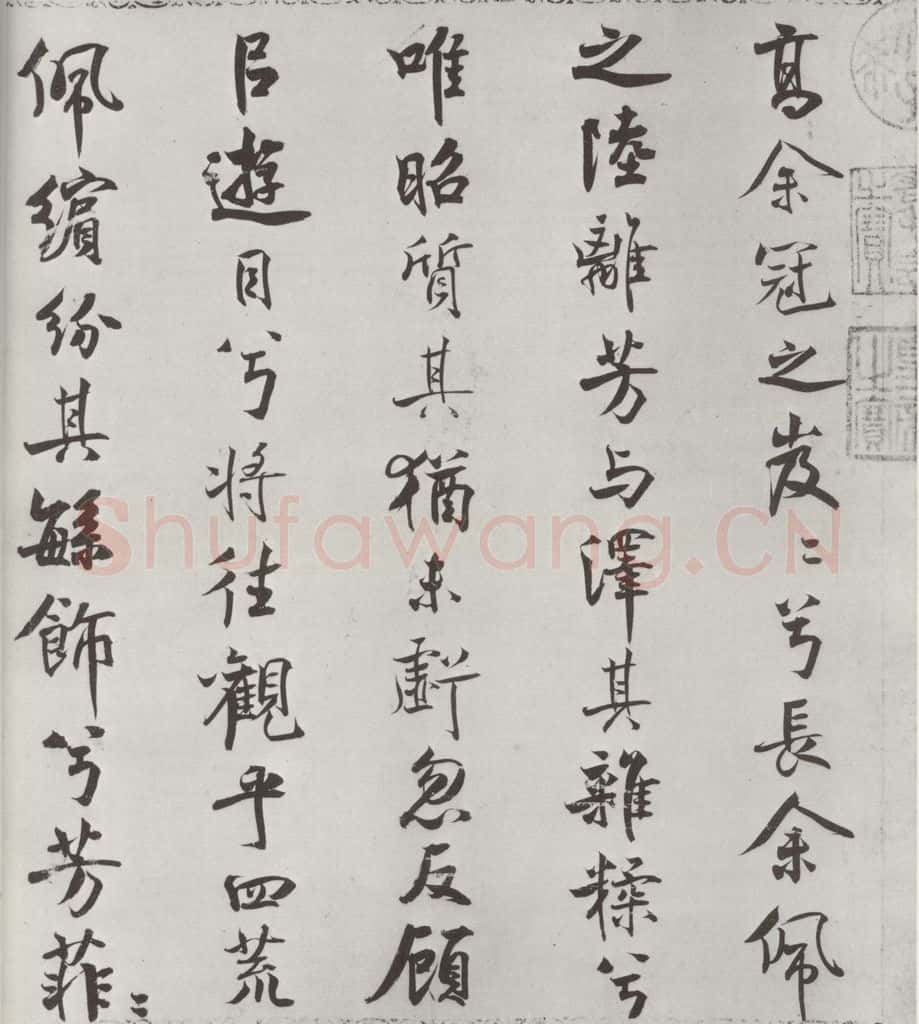 高余冠之岌〻兮長余佩
之陸離芳与澤其雜糅兮
唯昭質其猶未虧忽反顧
㠯遊目兮將往觀乎四荒
佩繽紛其繁飾兮芳菲〻
Shufawang.CN